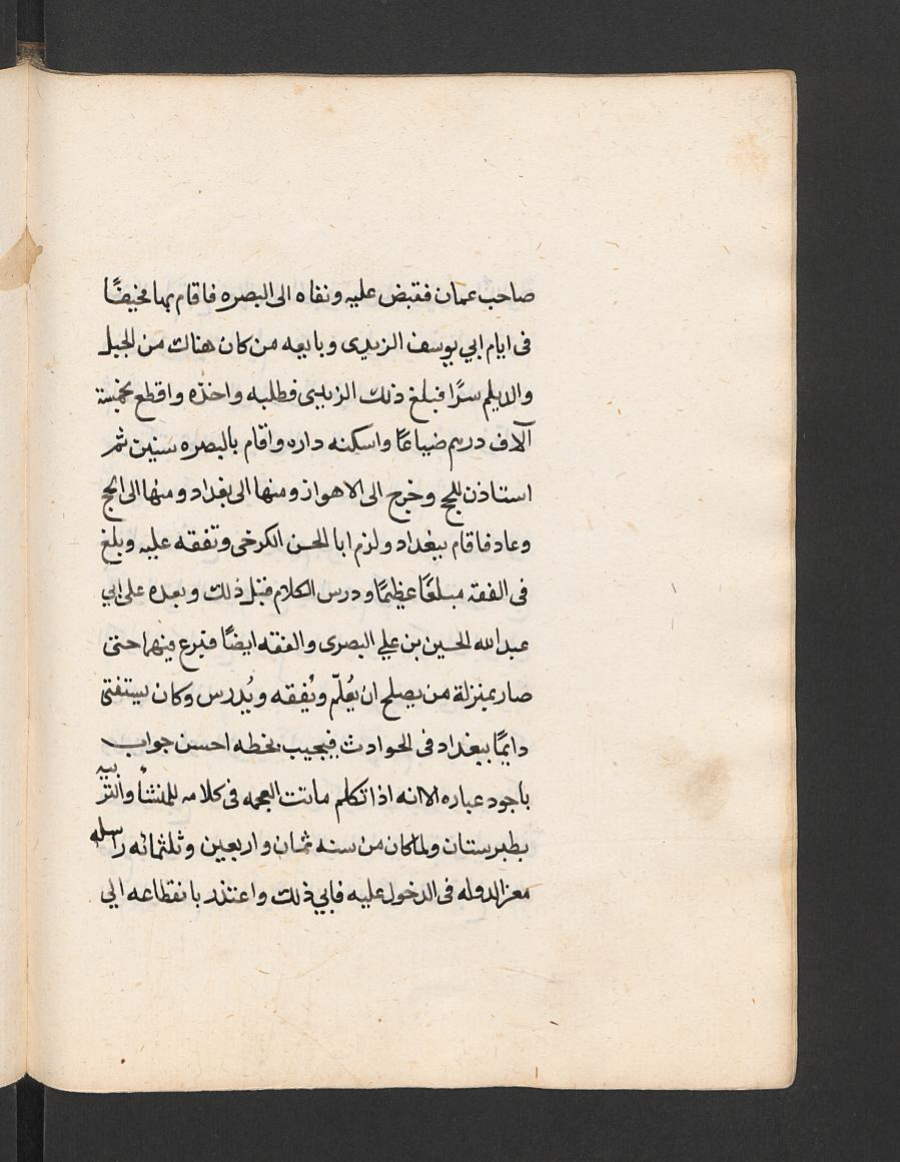 صاحب عمان فقبض عليه ونفاه الى البصره فاقام بها مخيفًا
فى ايام ابي يوسف الزيدى وبايعه من كان هناك من الجيل
والديلم سرًا فبلغ ذلك الزيدى فطلبه واخذه واقطع بخمسة
آلاف درهم ضياعًا واسكنه داره واقام بالبصره سنين ثم
استاذن للحج وخرج الى الاهواز ومنها الى بغداد ومنها الى الحج
وعاد فاقام ببغداد ولزم ابا الحسن الكرخى وتفقه عليه وبلغ
فى الفقه مبلغًا عظيمًا ودرس الكلام قبل ذلك وبعده على ابي
عبد الله الحسين بن علي البصرى والفقه ايضًا فبرع فيهما حتى
صار بمنزلة من يصلح ان يُعلّم ويُفقه ويُدرس وكان يستفتى
دايمًا ببغداد فى الحوادث فيجيب بخطه احسن جواب
باجود عباره الا انه اذا تكلم مانت العجمه فى كلامه للمنشأ والتربيه
بطبرستان ولما كان من سنه ثمان واربعين وثلثمائه راسله
معز الدوله فى الدخول عليه فابي ذلك واعتذر بانقطاعه الي